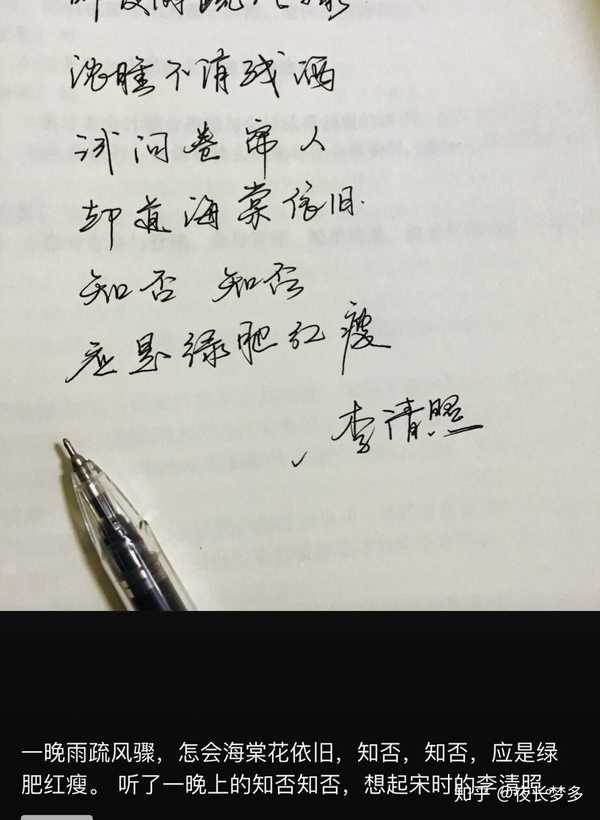 浓睡不消残酒
试问卷帘人
却道海棠依旧.
知否 知否
应是绿肥红瘦
李清照
一晚雨疏风骤，怎会海棠花依旧，知否，知否，应是绿
肥红瘦。 听了一晚上的知否知否，想起宋时的李清照。
知乎 @夜长梦多